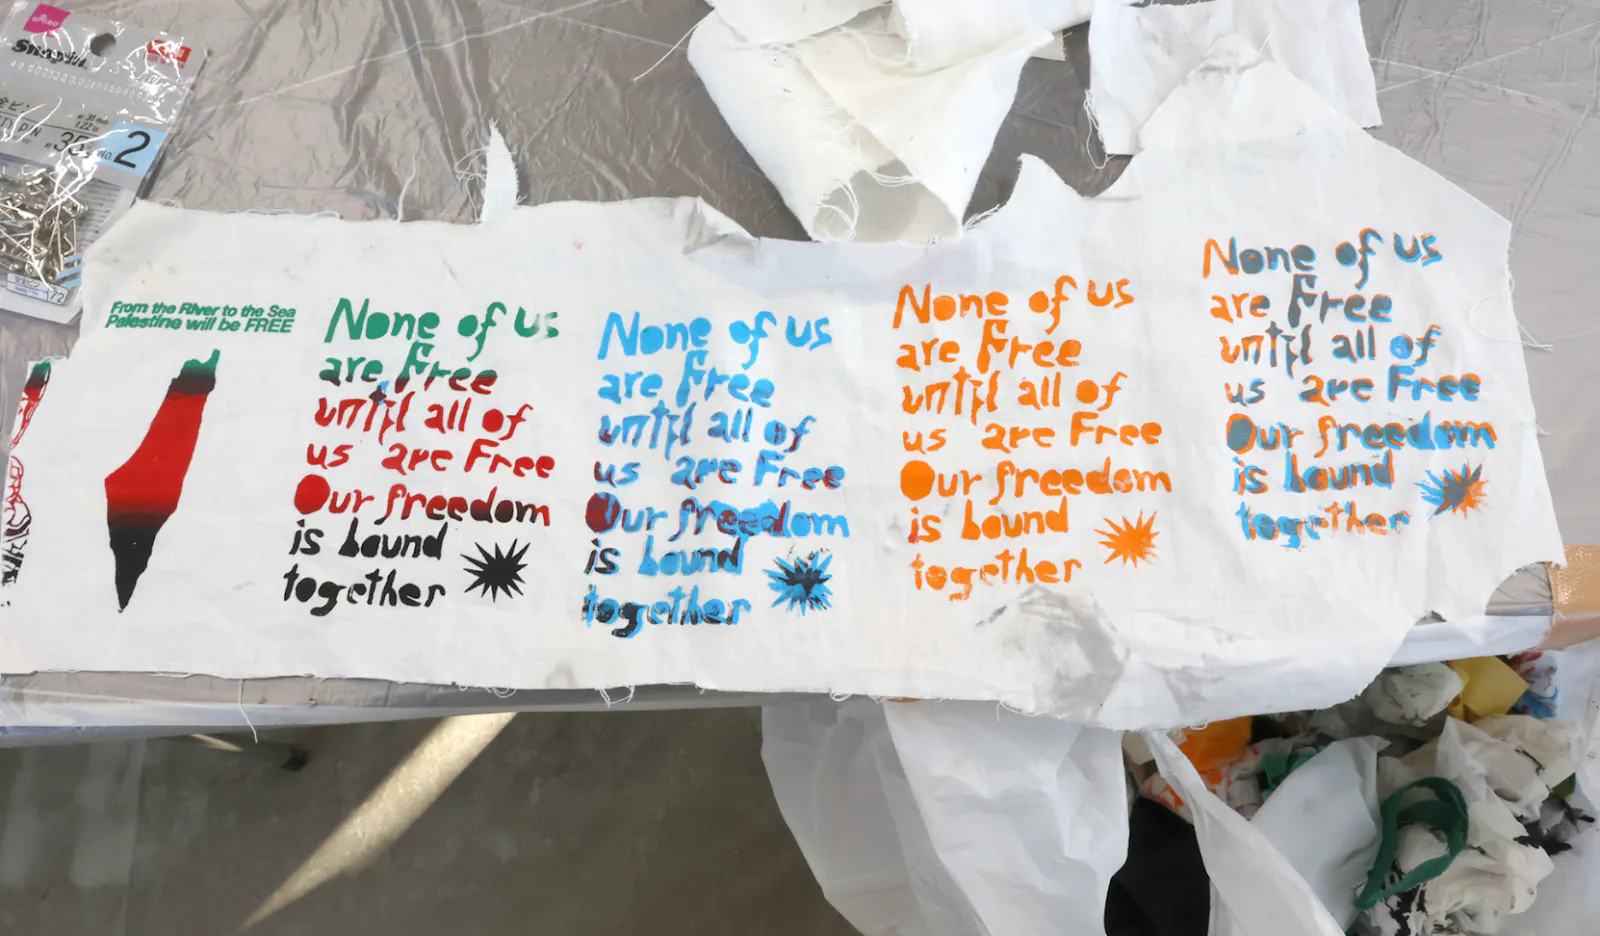 DAISO
2
No.
35
From the River to the Sea
Palestine will be FREE
None of us
are Free
until all of
us are Free
Our freedom
is bound
together
None of us
are Free
until all of
us are Free
Our freedom
is bound
together
None of us
are Free
until all of
us are Free
Our freedom
is bound
together
None of us
are Free
until all of
us are Free
Our freedom
is bound
together